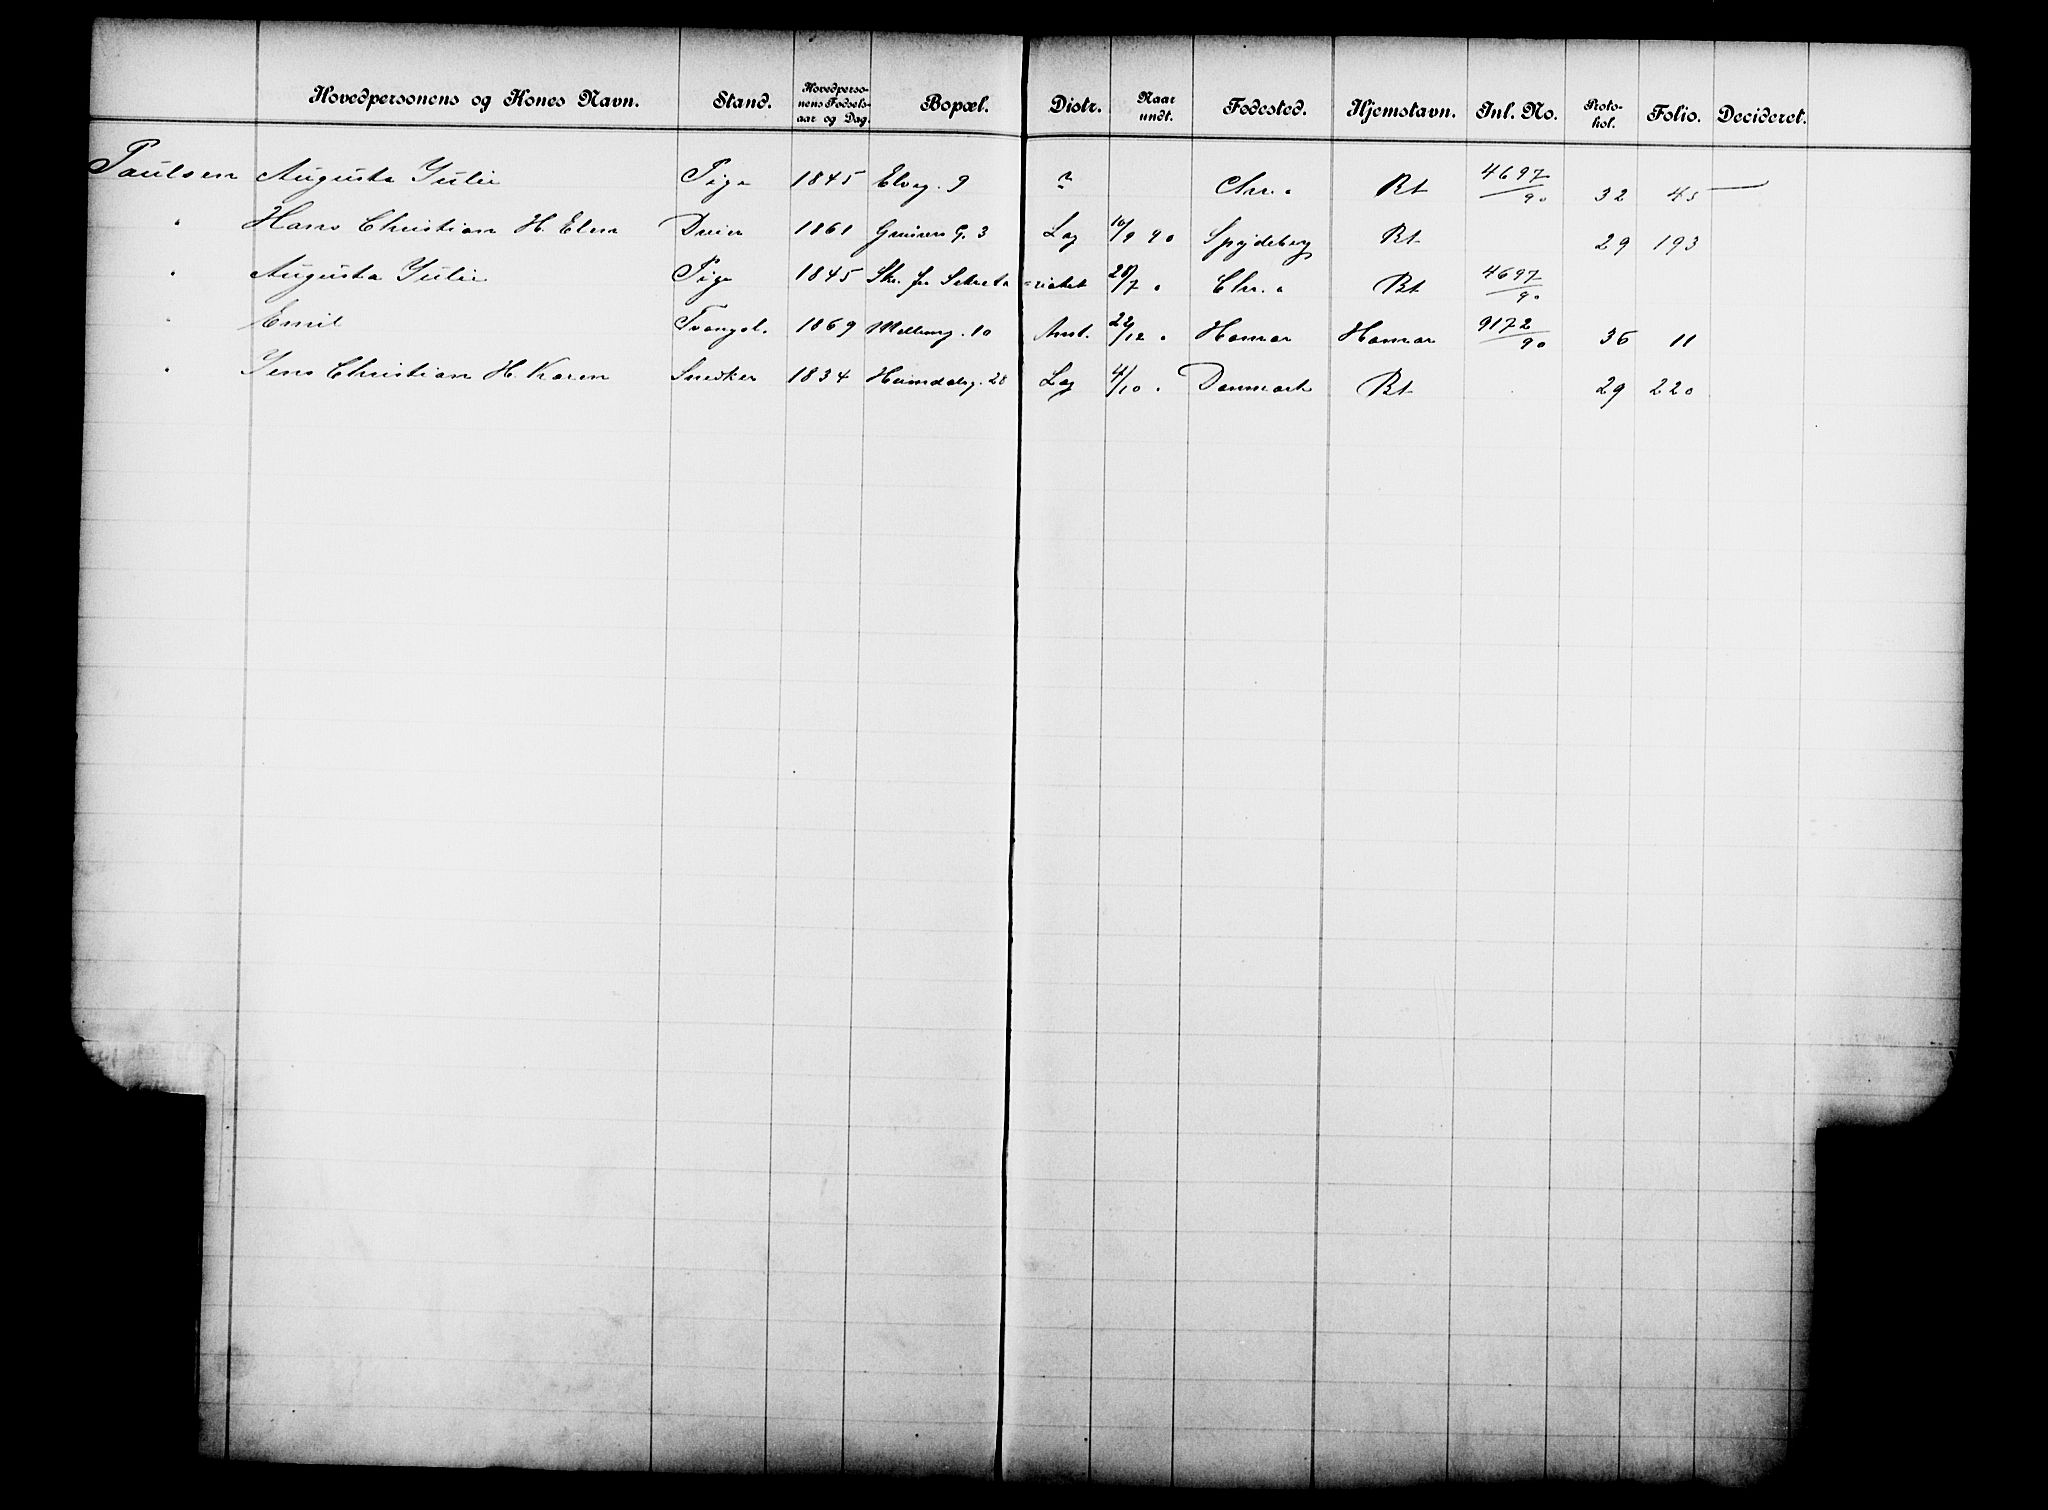 Hovedpersonens og Kones Navn. Stand. Hovedpersonens Fødselsaar og Dag. Bopæl. Distr. Naar undt. Fødested. Hjemstavn. Inl. No. Protokol. Folio. Decideret.
Paulsen Augusta Julie Pige 1845 Elveg. 9 " Chr.a Bt 4697/90 32 45 —
" Hans Christian H. Elen Dreier 1861 Grüners G. 3 Lag 10/9 90 Spydeberg Bt 29 193
" Augusta Julie Pige 1845 Skr. fr Sekreta-riatet 28/7 " Chr.a Bt 4697/90
" Emil Tvangsl. 1869 Mellemg. 10 Anst. 22/12 " Hamar Hamar 9172/90 36 11
" Jens Christian H. Karen Snedker 1834 Heimdalsg. 28 Lag 4/10 " Danmark Bt 29 220